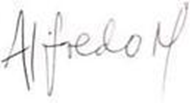 Alfredo M